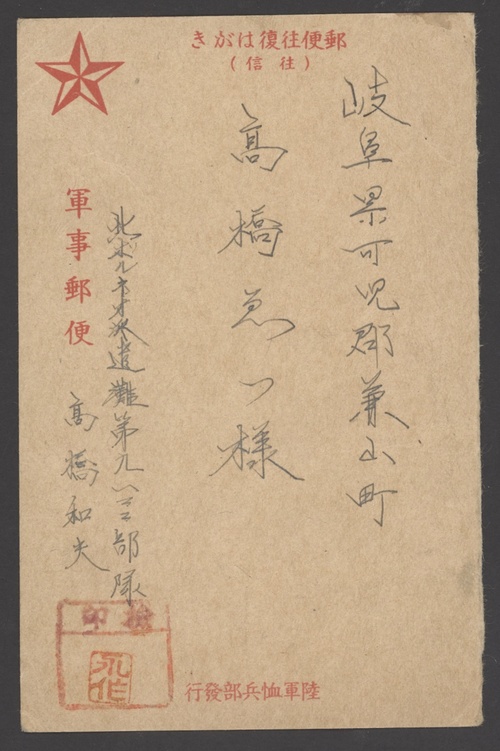 郵便往復はがき
（往信）
岐阜県可児郡兼山町
高橋ゑつ様
軍事郵便
北ボルネオ派遣灘第九八三部隊
高橋和夫
検印
陸軍恤兵部發行